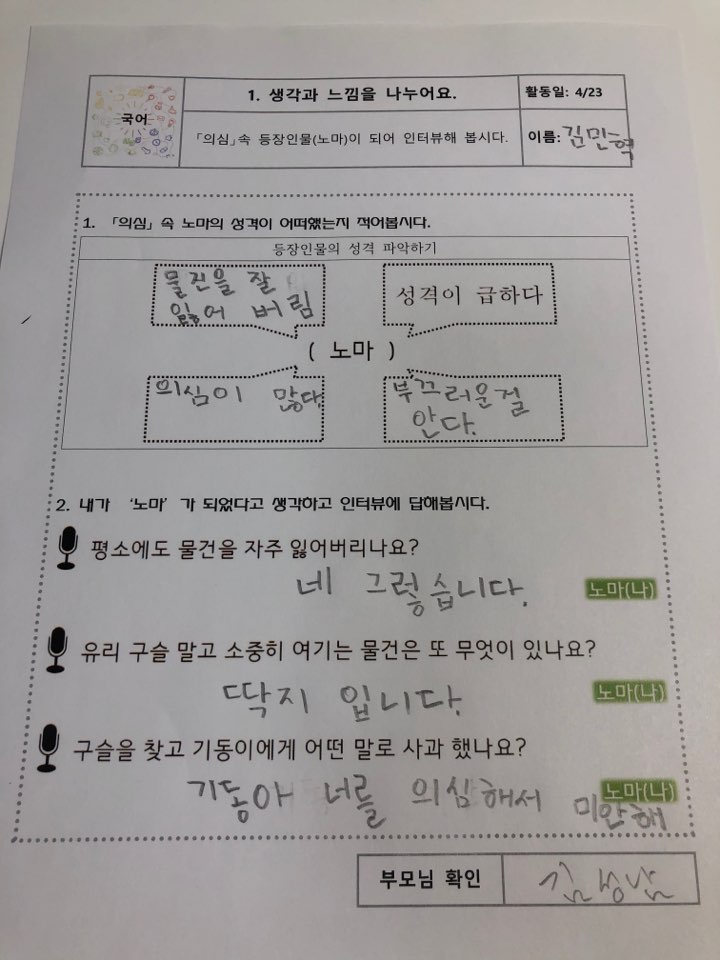 국어
1. 생각과 느낌을 나누어요.
활동일: 4/23
「의심」속 등장인물(노마)이 되어 인터뷰해 봅시다.
이름: 김민혁
1. 「의심」 속 노마의 성격이 어떠했는지 적어봅시다.
등장인물의 성격 파악하기
물진을 잘
잃어 버림
성격이 급하다
( 노마 )
의심이 많다.
부끄러운걸
안다.
2. 내가 '노마'가 되었다고 생각하고 인터뷰에 답해봅시다.
평소에도 물건을 자주 잃어버리나요?
네 그렇습니다.
노마(나)
유리 구슬 말고 소중히 여기는 물건은 또 무엇이 있나요?
딱지 입니다.
노마(나)
구슬을 찾고 기동이에게 어떤 말로 사과 했나요?
기동아 너를 의심해서 미안해
노마(나)
부모님 확인